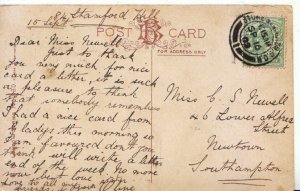 Stamford Hill
10 Sept
POST CARD
FOR ADDRESS ONLY
Dear Miss Newell
Just to thank
you very much for nice
card & letter, it is such
a pleasure to think
that somebody remembers
I had a nice card from
Gladys this morning so
am favoured don't you
think will write a letter
end of the week no more
now best love
Miss C. S. Newell
46 Lower Alfred
Street
Newtown
Southampton